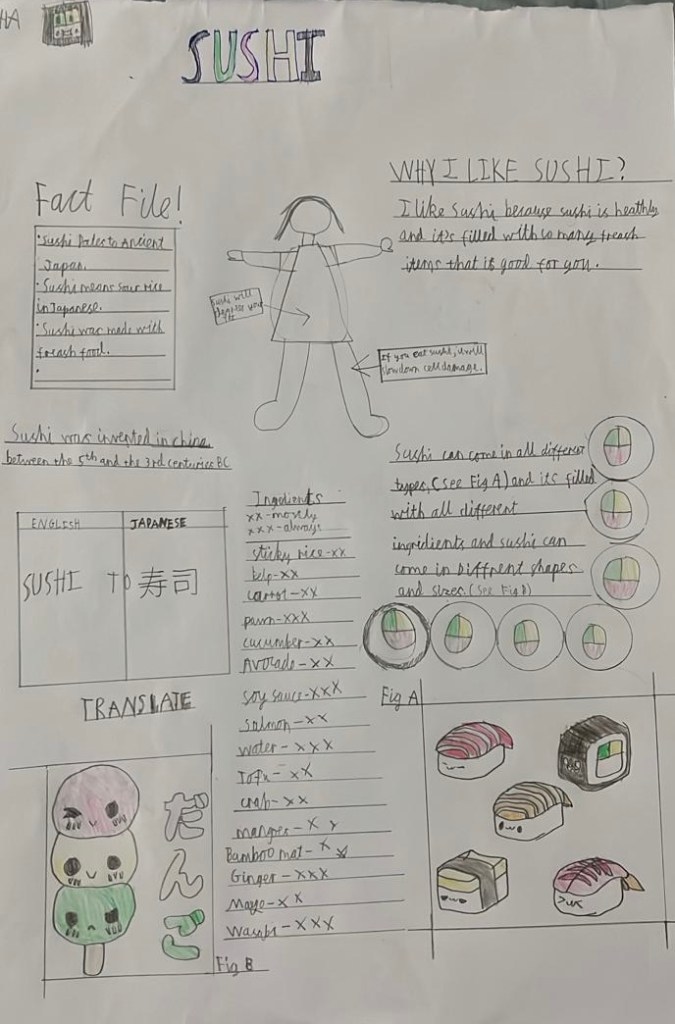 HA
SUSHI
Fact File!
•Sushi Dates to Ancient
Japan.
•Sushi means sour rice
in Japanese.
•Sushi was made with
freach food.
•
WHY I LIKE SUSHI?
I like sushi because sushi is heathly
and it's filled with so many freach
items that is good for you.
sushi will
your
If you eat sushi, it will
slow down cell damage.
Sushi was invented in china
between the 5th and the 3rd centuries BC
ENGLISH JAPANESE
SUSHI TO 寿司
TRANSLATE
Ingredients
xx-mostly
xxx-always
sticky rice-xx
kelp-xx
carrot-xx
pawn-xxx
cucumber-xx
Avocado-xx
soy sauce-xxx
salmon-xx
water-xxx
Tofu-xx
crab-xx
mangoes-xx
Bamboo mat-xx
Ginger-xxx
Mayo-xx
Wasabi-xxx
Sushi can come in all different
types, (see Fig A) and its filled
with all different
ingredients and sushi can
come in Diffrent shapes
and sizes. (see Fig B)
Fig A
だんご
Fig B